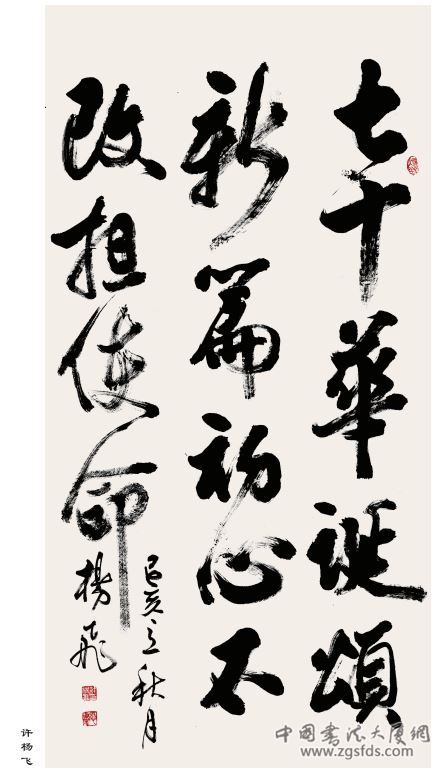 七十華诞頌
新篇初心不
改担使命
己亥之秋月
楊飛
许杨飞
中国书法大厦網
www.zgsfds.com